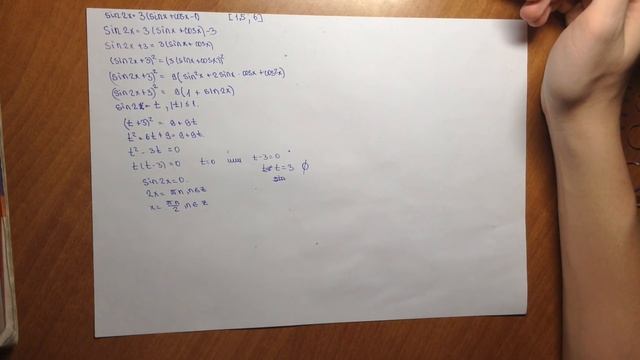 sin2x = 3(sinx+cosx-1) [1,5; 6]
Sin2x = 3(sinx+cosx)-3
Sin2x+3 = 3(sinx+cosx)
(sin2x+3)² = (3(sinx+cosx))²
(sin2x+3)² = 9(sin²x + 2sinx·cosx+cos²x)
(sin2x+3)² = 9(1+sin2x)
sin2x = t, |t| ≤ 1.
(t+3)² = 9+9t
t²+6t+9 = 9+9t
t²-3t = 0
t(t-3)=0 t=0 или t-3=0
t=3 ∅
sin
sin2x=0.
2x = πn, n∈z
x = πn/2, n∈z